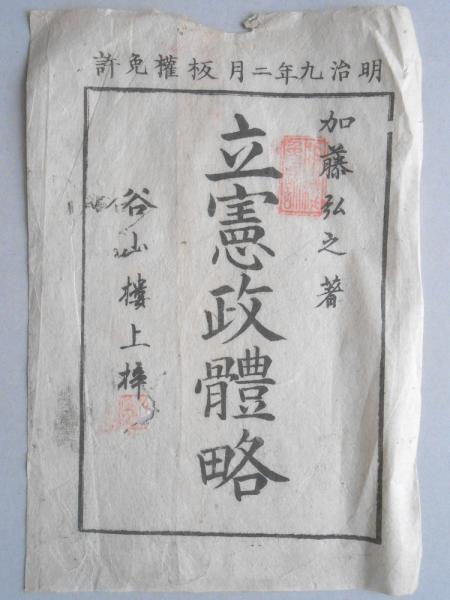 明治九年二月板權免許
加藤弘之著
立憲政體略
谷山樓上梓